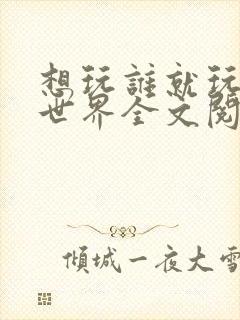 想玩誰就玩
世界全文閱
傾城一夜大雪